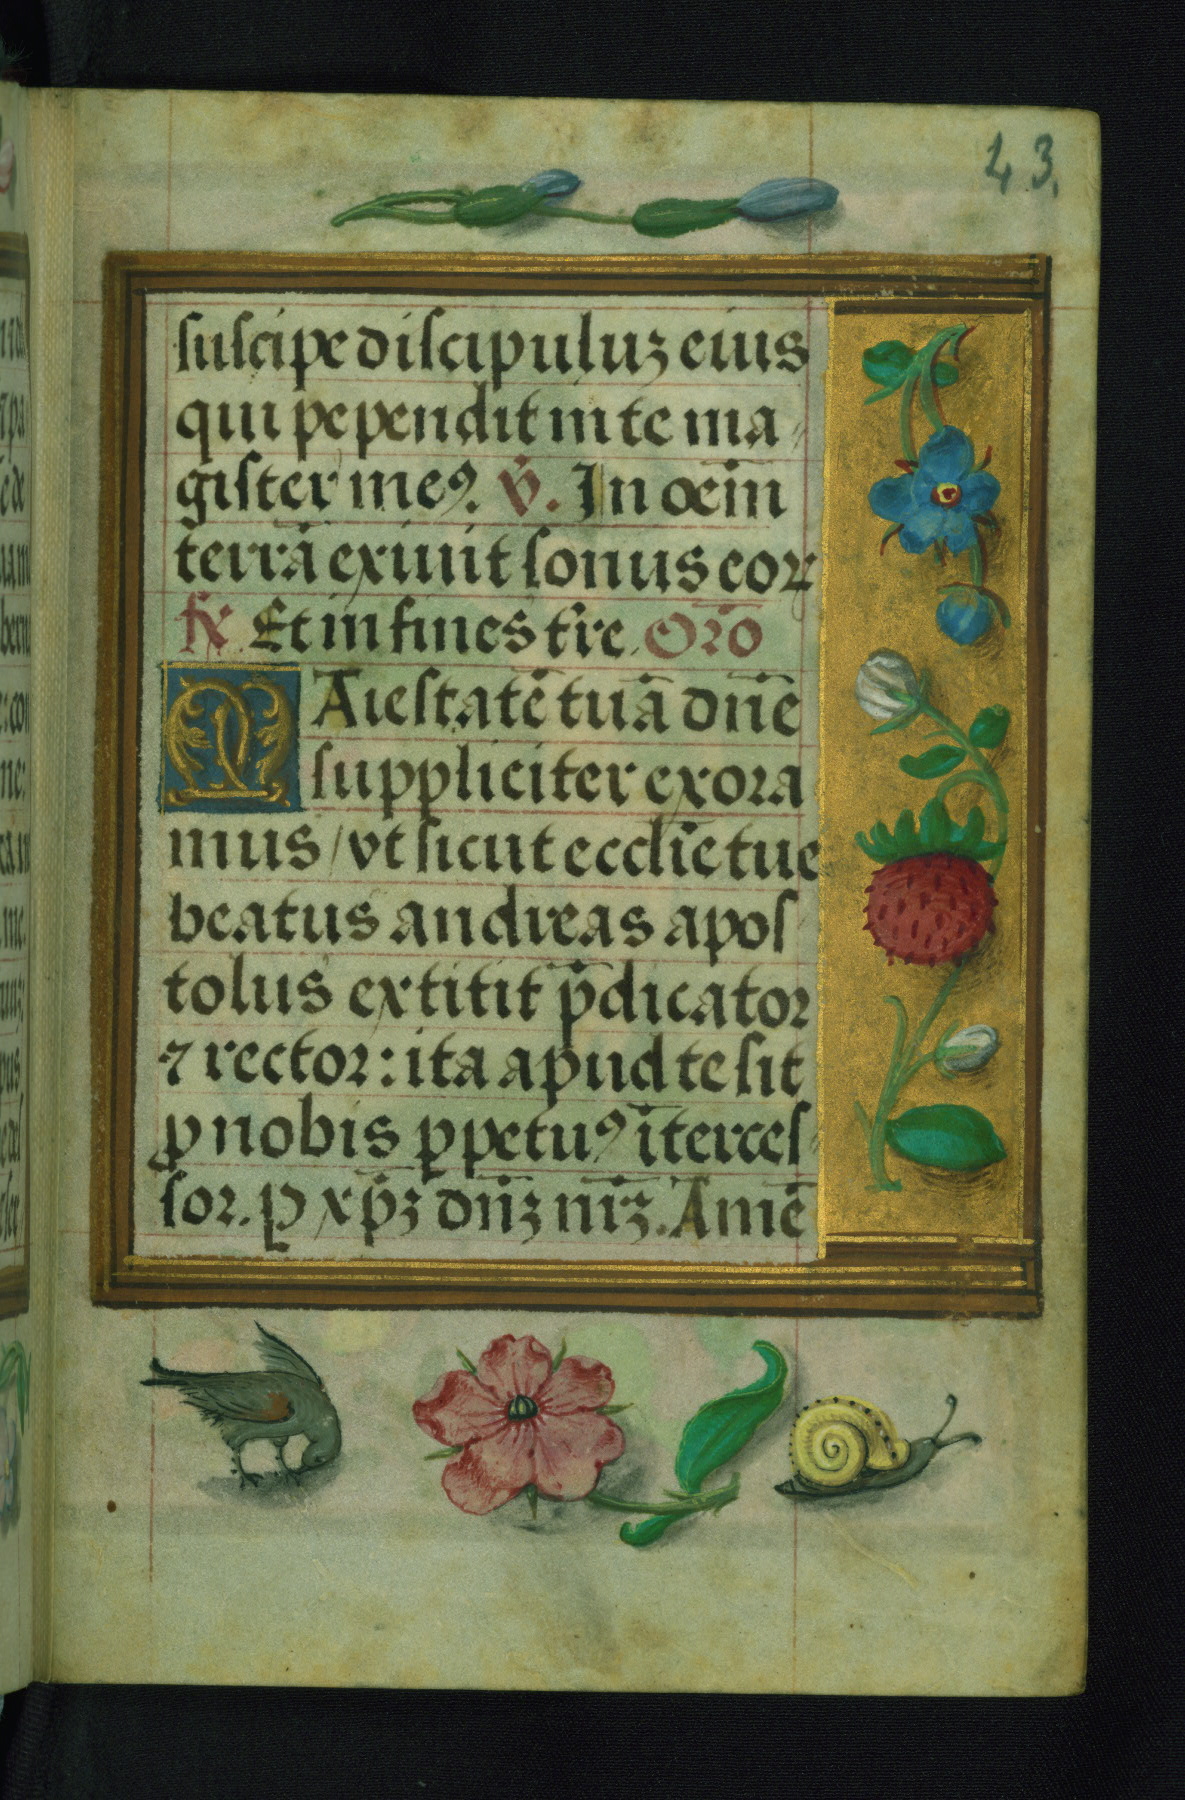 43.
suscipe discipuluz eius
qui pependit in te ma
gister me9. V̄. In oem̄
terrā exiuit sonus eoꝝ
R̄. Et in fines tr̄e. Or̄o
MAiestatē tuā dn̄e
suppliciter exora
mus / vt sicut eccl̄ie tue
beatus andreas apos
tolus extitit p̄dicator
⁊ rector: ita apud te sit
ꝓ nobis ꝑpetu9 īterces
sor. P xp̄ȝ dn̄ȝ nr̄ȝ. Amē